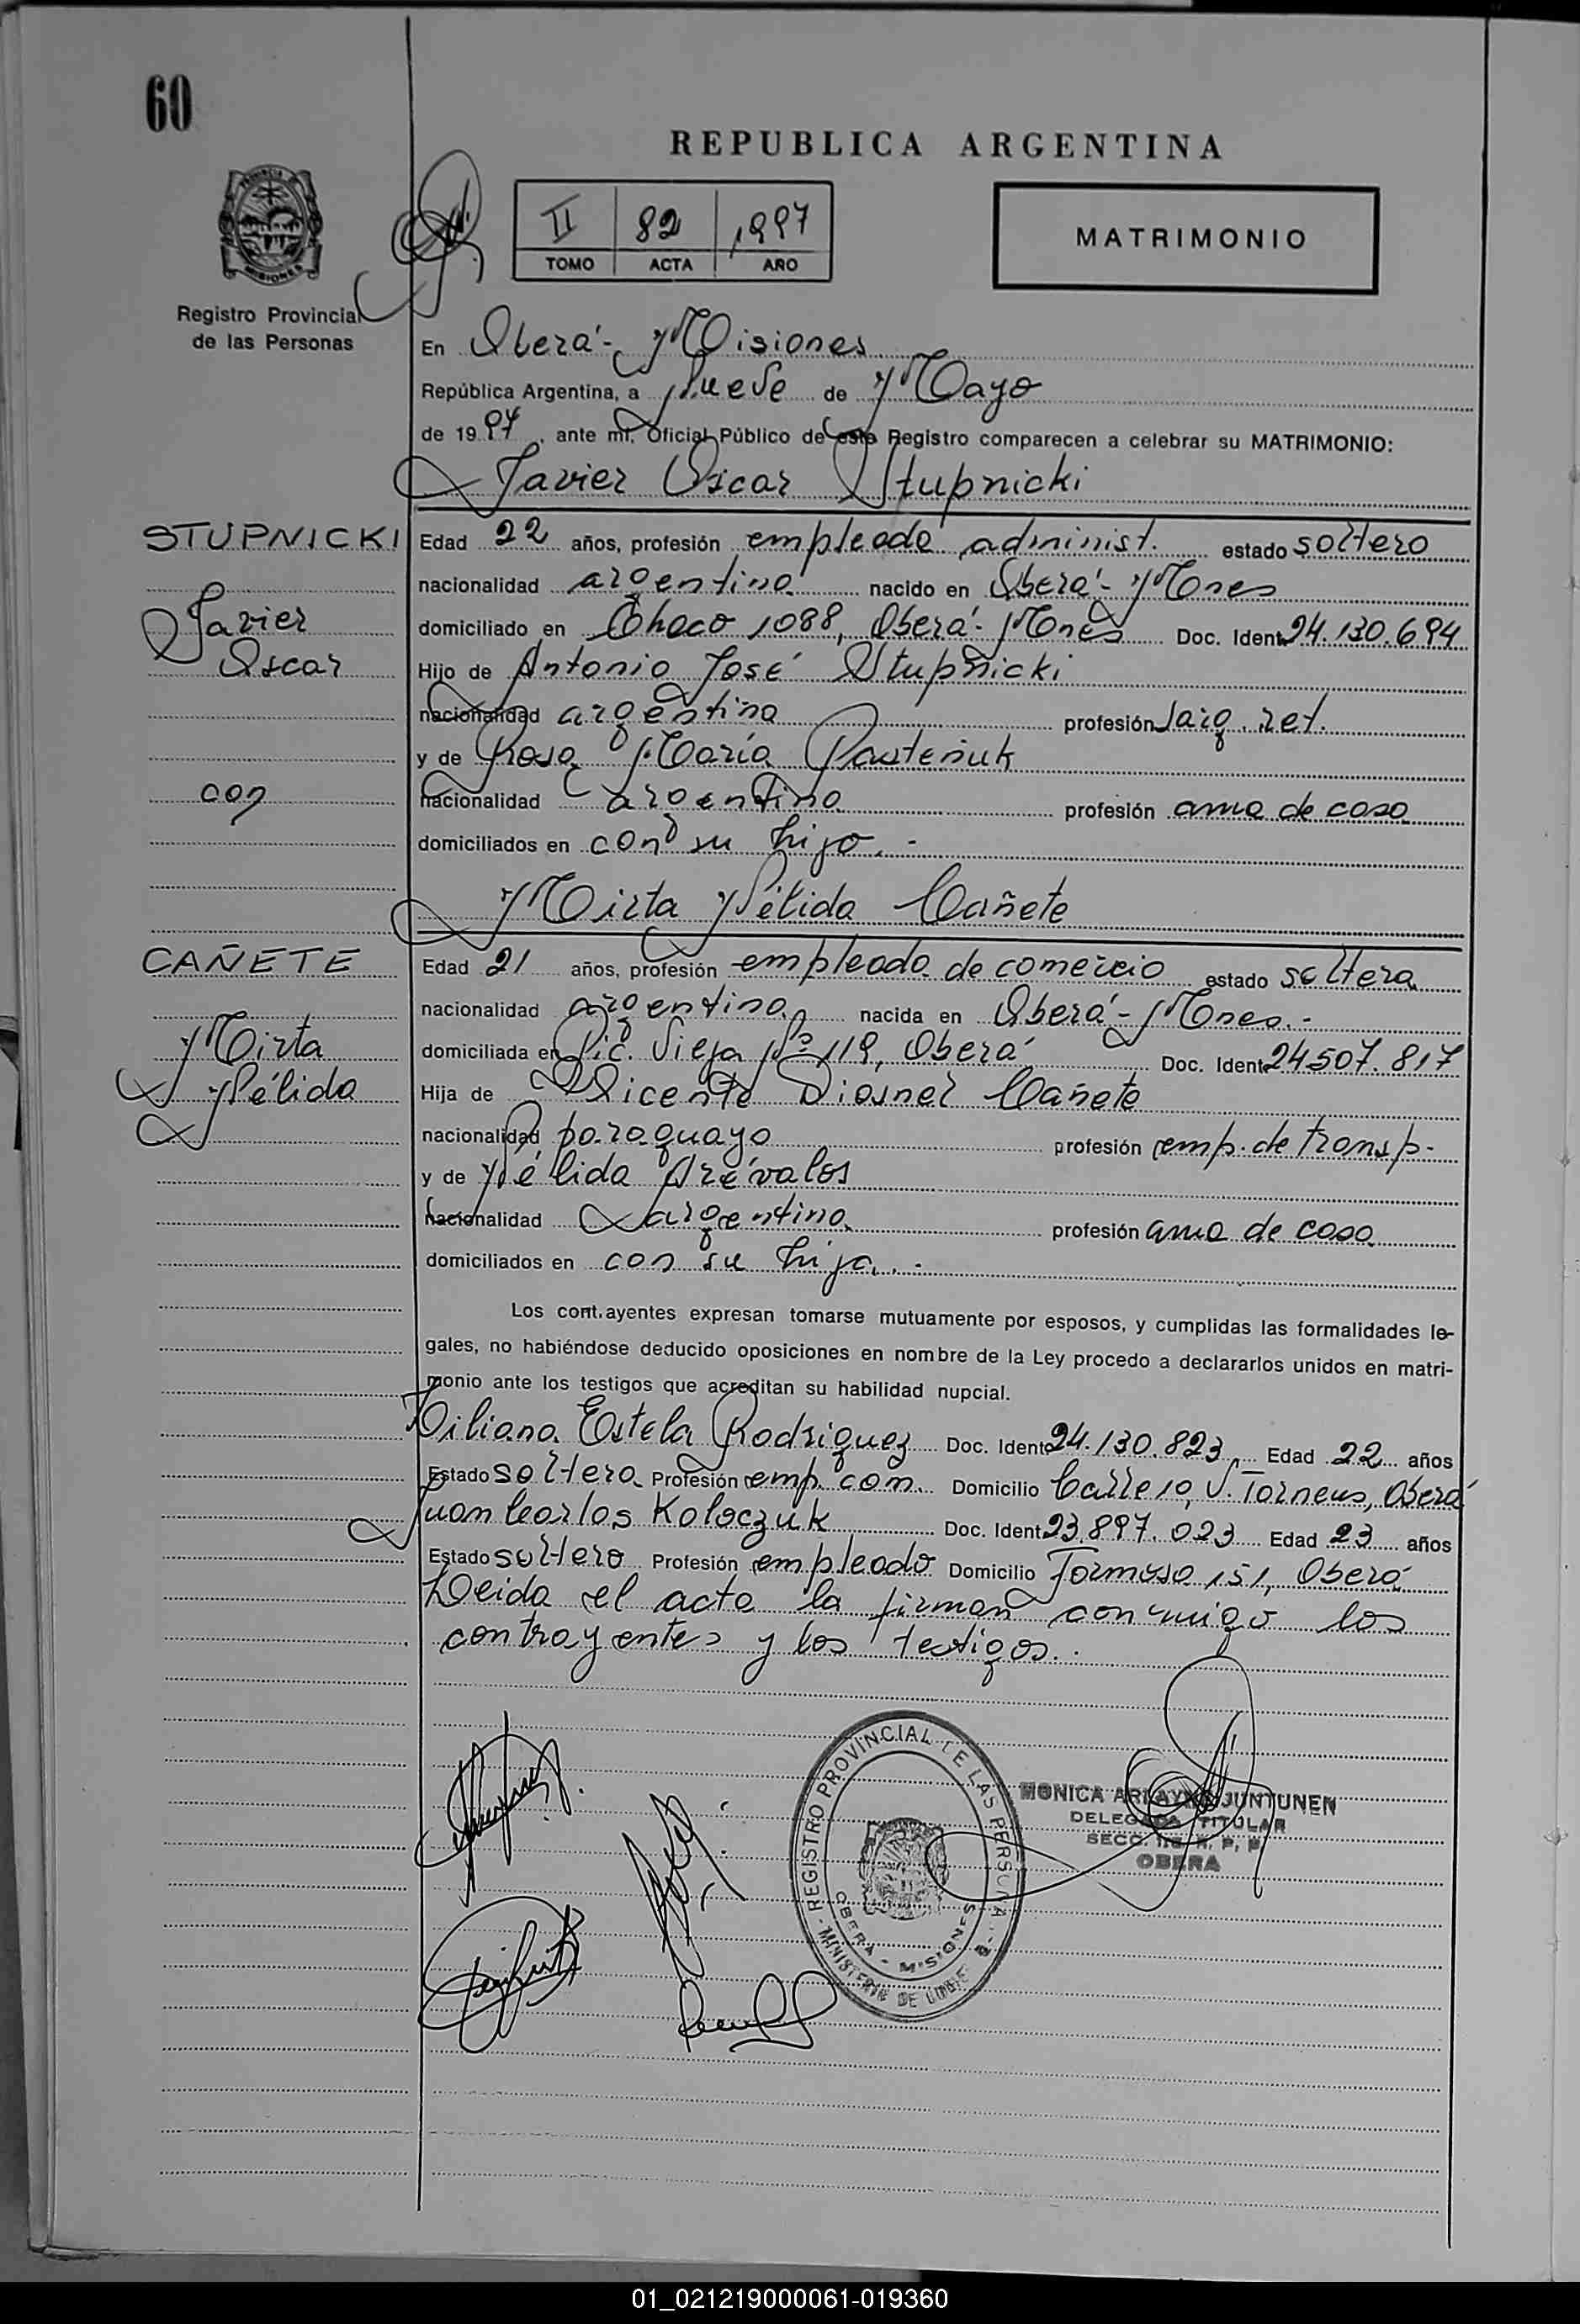 60
REPUBLICA ARGENTINA
II 82 1997
TOMO ACTA AÑO
MATRIMONIO
PROVINCIA
MISIONES
Registro Provincial
de las Personas
En Oberá - Misiones
República Argentina, a Nueve de Mayo
de 1997, ante mí, Oficial Público de este Registro comparecen a celebrar su MATRIMONIO:
Javier Oscar Stupnicki
STUPNICKI
Javier
Oscar
con
Edad 22 años, profesión empleado administ. estado soltero
nacionalidad argentina nacido en Oberá - Mnes
domiciliado en Chaco 1088, Oberá - Mnes Doc. Ident. 24.130.694
Hijo de Antonio José Stupnicki
nacionalidad argentina profesión ret.
y de Rosa María
nacionalidad argentina profesión ama de casa
domiciliados en con su hijo. -
Mirta Nélida Cañete
CAÑETE
Mirta
Nélida
Edad 21 años, profesión empleada de comercio estado soltera
nacionalidad argentina nacida en Oberá - Mnes. -
domiciliada en Pic. Vieja Nº 119, Oberá Doc. Ident. 24.507.817
Hija de Vicente Diosnel Cañete
nacionalidad paraguayo profesión emp. de transp. -
y de Nélida Arévalos
nacionalidad argentina profesión ama de casa
domiciliados en con su hija. -
Los cont.ayentes expresan tomarse mutuamente por esposos, y cumplidas las formalidades le-
gales, no habiéndose deducido oposiciones en nombre de la Ley procedo a declararlos unidos en matri-
monio ante los testigos que acreditan su habilidad nupcial.
Viliana Estela Rodriguez Doc. Ident. 24.130.823 Edad 22 años
Estado soltera Profesión emp. com. Domicilio Calle 10, V. Torneus, Oberá
Juan Carlos Kolaczuk Doc. Ident. 23.897.023 Edad 23 años
Estado soltero Profesión empleado Domicilio Formosa 151, Oberá
Leida el acta la firman conmigo los
contrayentes y los testigos. -
REGISTRO PROVINCIAL DE LAS PERSONAS
OBERA - MISIONES
MINISTERIO DE GOB.
MONICA JUNTUNEN
DELEGADA TITULAR
SECC. R. P. P.
OBERA
01_021219000061-019360